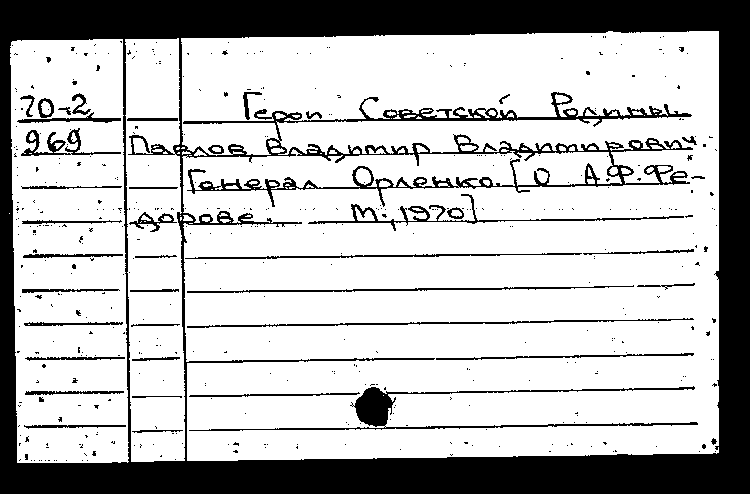 70-2 Герои Советской Родины.
969 Павлов, Владимир Владимирович.
Генерал Орленко. [О А.Ф.Фе-
дорове. М., 1970]